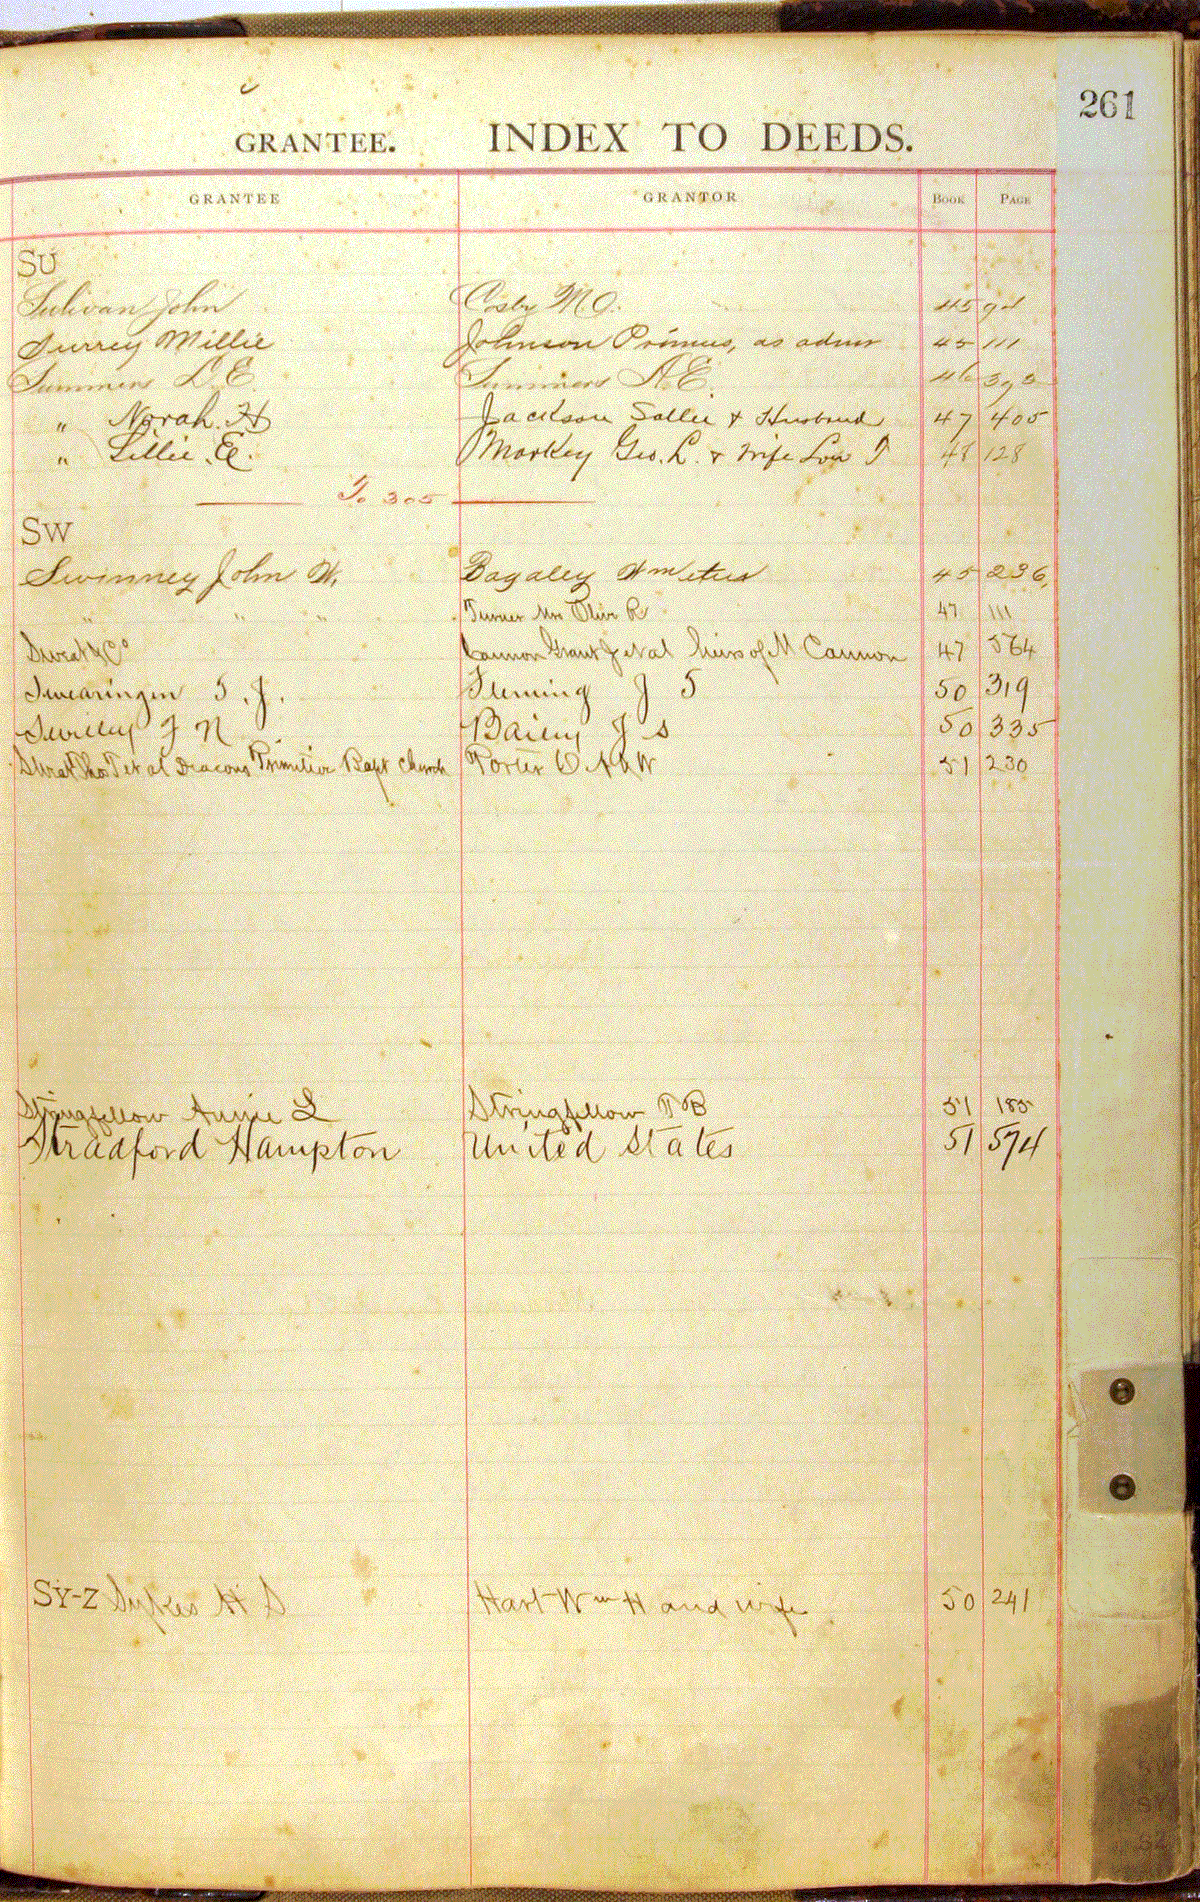 261
GRANTEE. INDEX TO DEEDS.
GRANTEE GRANTOR BOOK PAGE
SU
Sulivan John Cosby M O. 45
Surrey Millie Johnson Primus, as admr 45 111
Summers D. E. Summers A. E. 46 393
" Norah. H Jackson Sallie & Husband 47 405
" Lillie. E. Markey Geo. L. & Wife Lou 48 128
To 305
SW
Swinney John W. Bagaley Wm et us 45 236
" " " Turner Mrs Olive R 47 111
Sweat & Co Cannon Grant J et al heirs of M Cannon 47 564
Swearingen J. Fleming J S 50 319
Swilley F N Bailey J S 50 335
Sweat T et al Deacons Primitive Bapt Church Porter W 51 230
Stringfellow Annie L Stringfellow T B 51 185
Stradford Hampton United States 51 574
SY-Z Sykes H S Hart Wm H and wife 50 241
SY
SZ